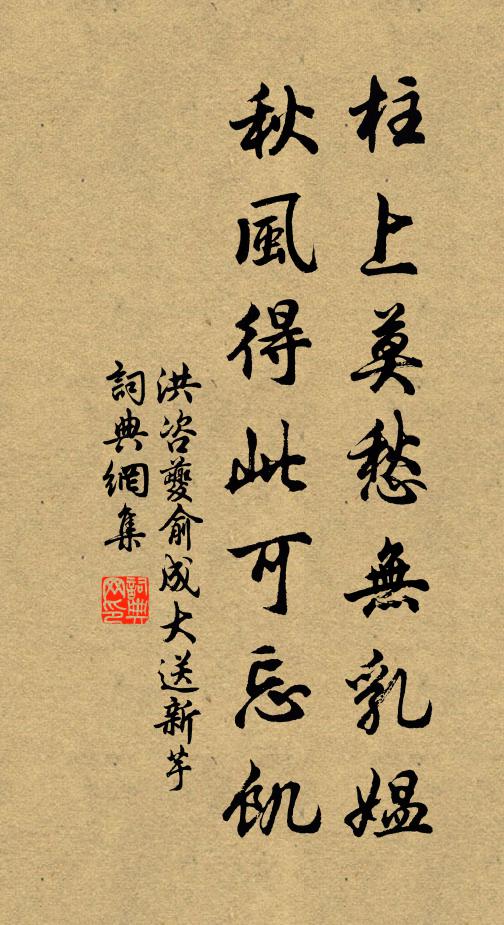 柱上莫愁無乳媼
秋風得此可忘飢
洪咨夔俞成大送新芋
詞典網集
詞典網印